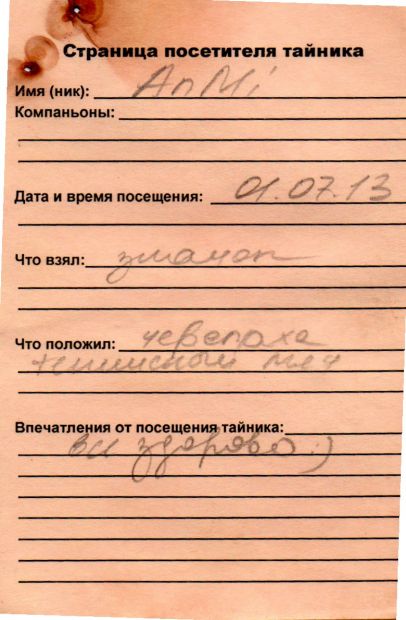 Страница посетителя тайника
Имя (ник): АлМі
Компаньоны:
Дата и время посещения: 01.07.13
Что взял:
Что положил: черепаха
теннисный мяч
Впечатления от посещения тайника:
всё здорово :)